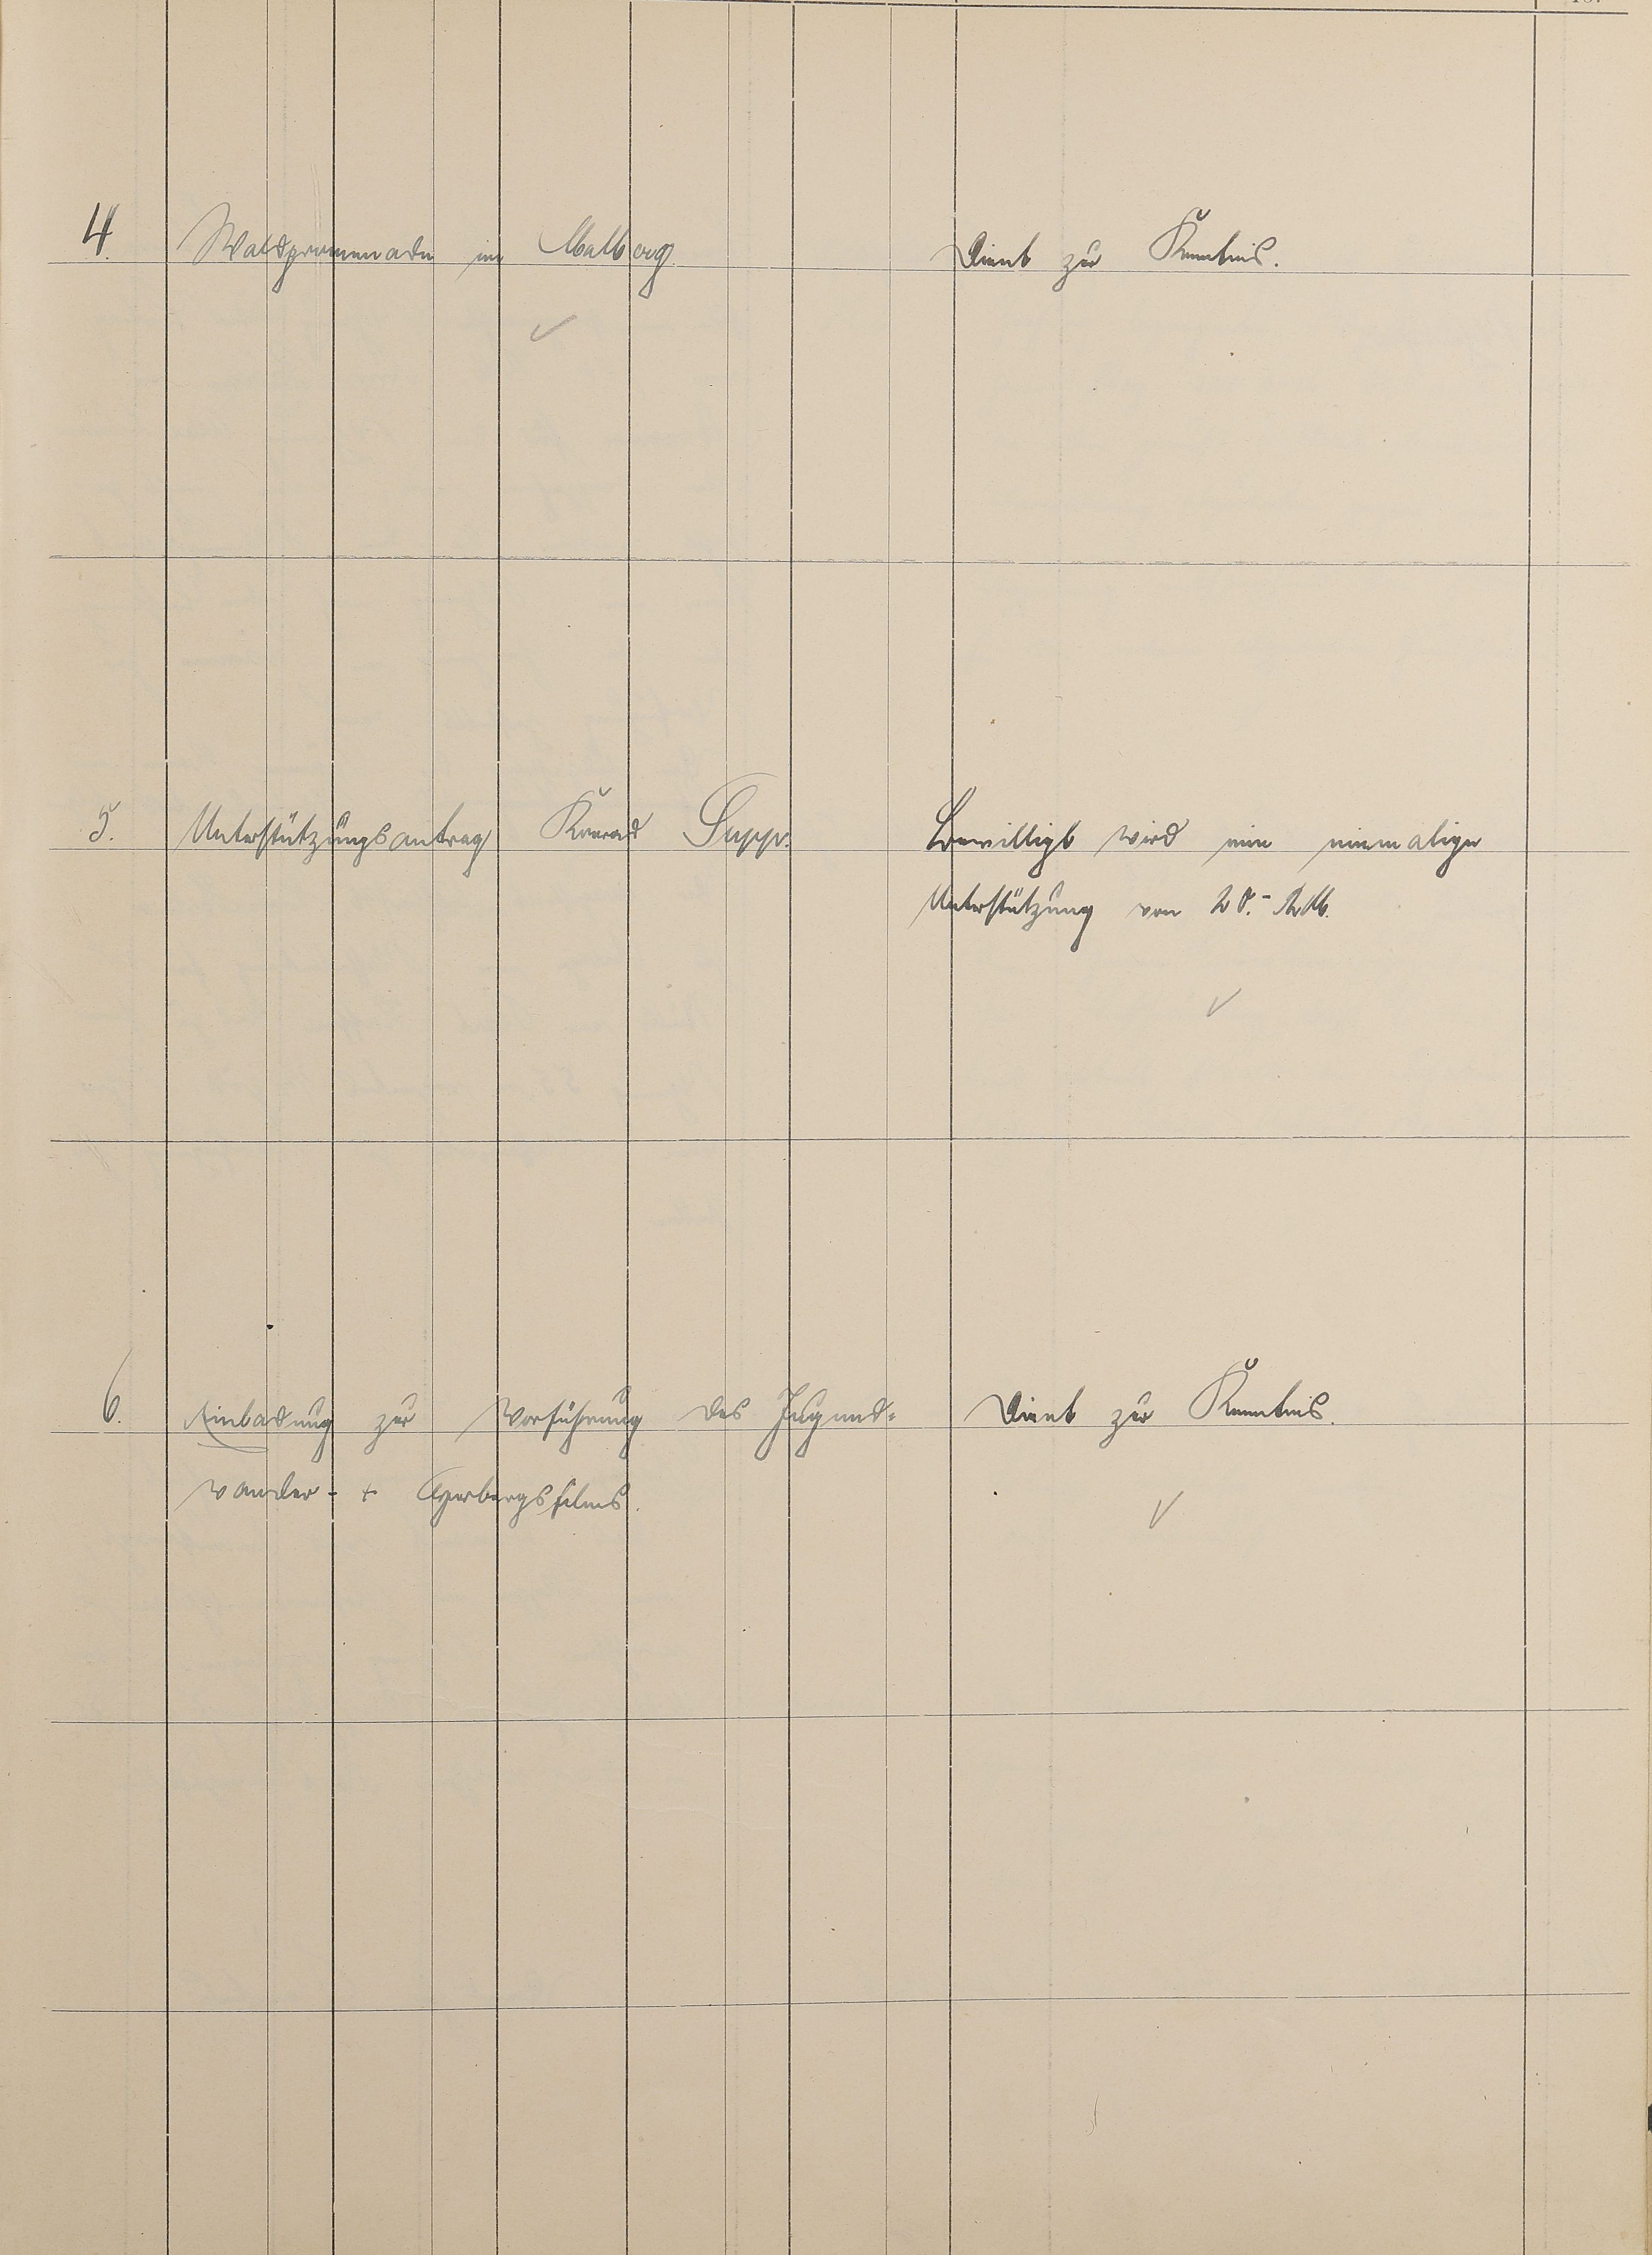 4. Waldpromenade im Malberg
Dient zur Kenntnis.
5. Unterstützungsantrag Konrad Supp.
Bewilligt wird eine einmalige
Unterstützung von 20.- RM.
6. Einladung zur Vorführung des Jugend-
wander- + Herbergsfilms.
Dient zur Kenntnis.